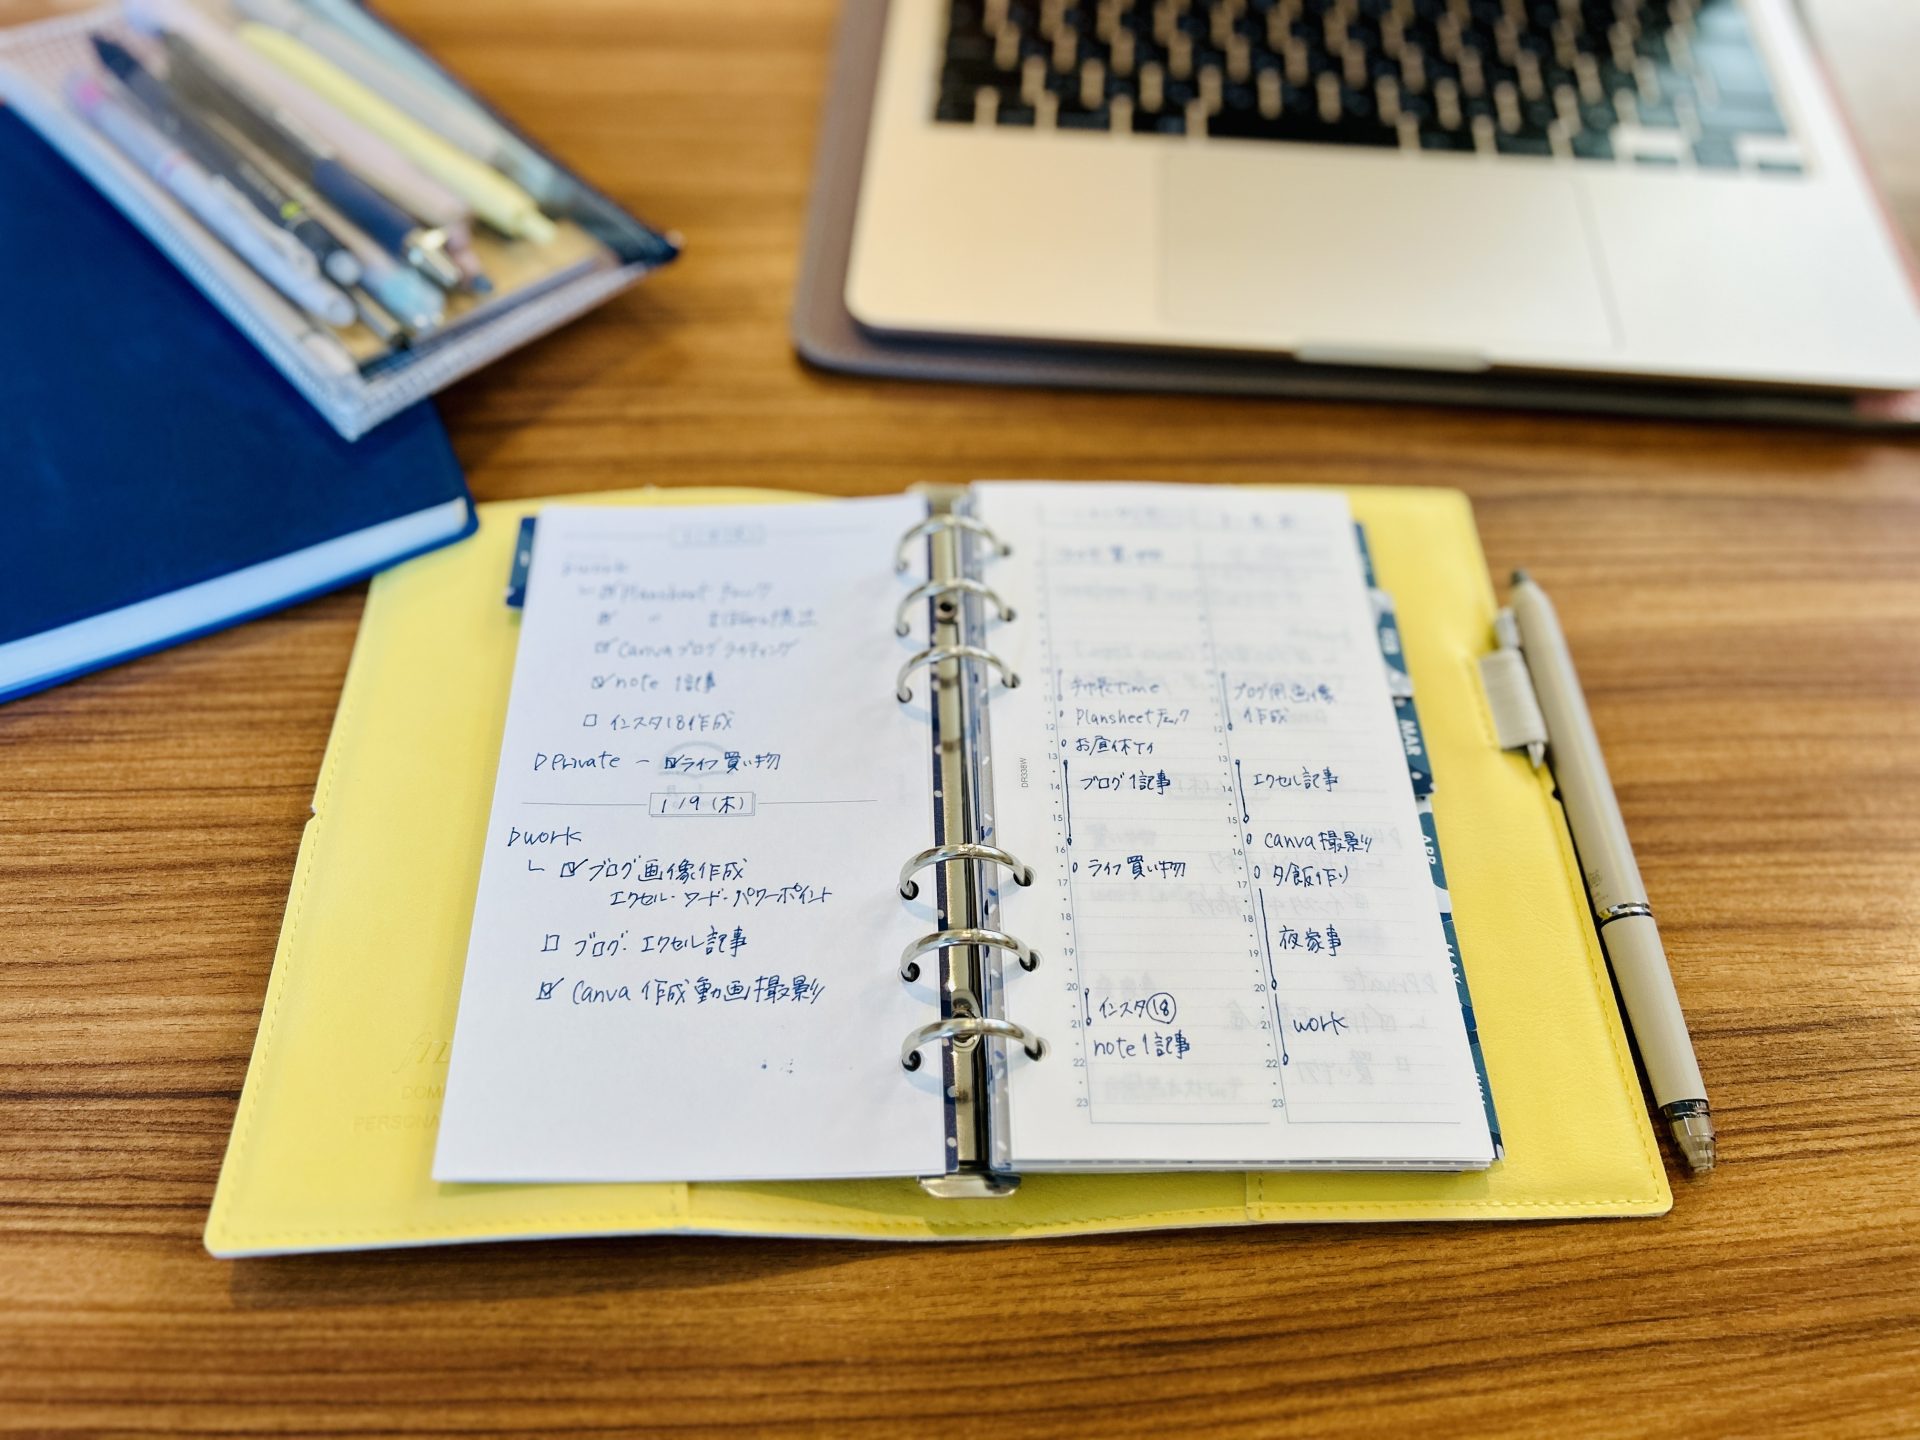 ▷work
☑ Plansheet チェック
☑ 〃
☑ Canvaブログライティング
☑ note 1記事
□ インスタ18作成
▷Private - ☑ライフ買い物
1/9(木)
▷work
└ ☑ ブログ画像作成
エクセル・ワード・パワーポイント
□ ブログ:エクセル記事
☑ Canva 作成動画撮影
手帳Time
Plansheetチェック
お昼休けい
ブログ1記事
ライフ買い物
インスタ⑱
note1記事
ブログ用画像
作成
エクセル記事
Canva撮影
夕飯作り
夜家事
work
11
12
13
14
15
16
17
18
19
20
21
22
23
13
14
15
16
17
18
19
20
21
22
23
DR338W
FEB
MAR
APR
MAY